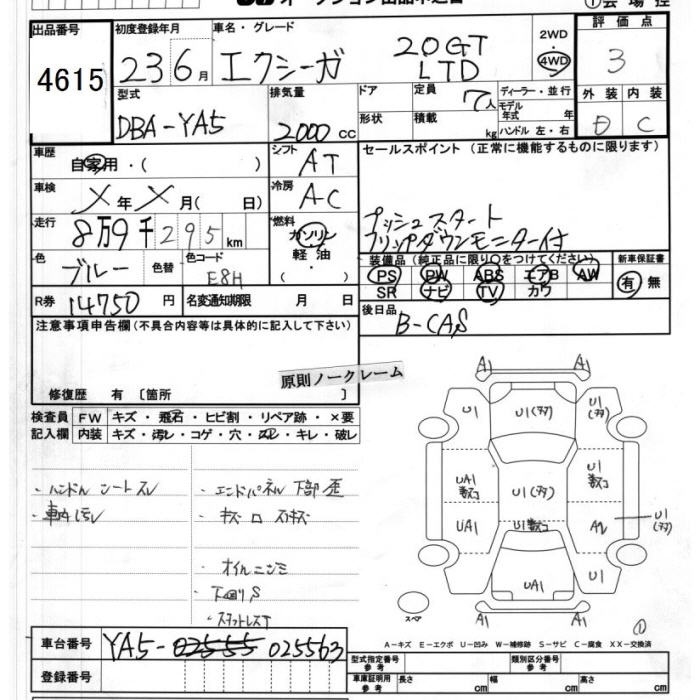 オークション出品申込書
①会場控
出品番号 初度登録年月 車名・グレード 2WD 評価点
4615 23 6月 エクシーガ 20GT LTD 4WD 3
型式 排気量 ドア 定員 7人 ディーラー・並行 外装 内装
DBA-YA5 2000cc 形状 積載 kg モデル年式 年 D C
ハンドル 左・右
車歴 自家用・( ) シフト AT セールスポイント (正常に機能するものに限ります)
車検 メ年メ月( 日) 冷房 AC
プッシュスタート
走行 8万9千295km 燃料 ガソリン 軽油 ・( ) フリップダウンモニター付
色 ブルー 色替 色コード E8H 装備品(純正品に限り○をつけてください) 新車保証書
PS PW ABS エアB AW 有・無
SR ナビ TV カワ
R券 14750円 名変通知期限 月 日 後日品
B-CAS
注意事項申告欄(不具合内容等は具体的に記入して下さい)
原則ノークレーム
修復歴 有 〔箇所 〕
検査員 FW キズ・飛石・ヒビ割・リペア跡・×要
記入欄 内装 キズ・汚レ・コゲ・穴・凹・キレ・破レ
・ハンドル シートスレ ・エンドパネル下部歪
・車内汚レ ・キズ 凹 スリキズ
・オイルニジミ
・下回りS
・スタッドレスT
A1 A1
U1 U1(アタ) U1(アタ)
UA1 数ヶ所 U1(アタ) U1 数ヶ所
UA1 U1数ヶ所 A2 U1(アタ)
UA1 U1
スペア A1 A1 ①
A-キズ E-エクボ U-凹み W-補修跡 S-サビ C-腐食 XX-交換済
車台番号 YA5-02555 025563
型式指定番号 参考 類別区分番号 参考
登録番号 車庫証明用 参考 長さ cm 幅 cm 高さ cm